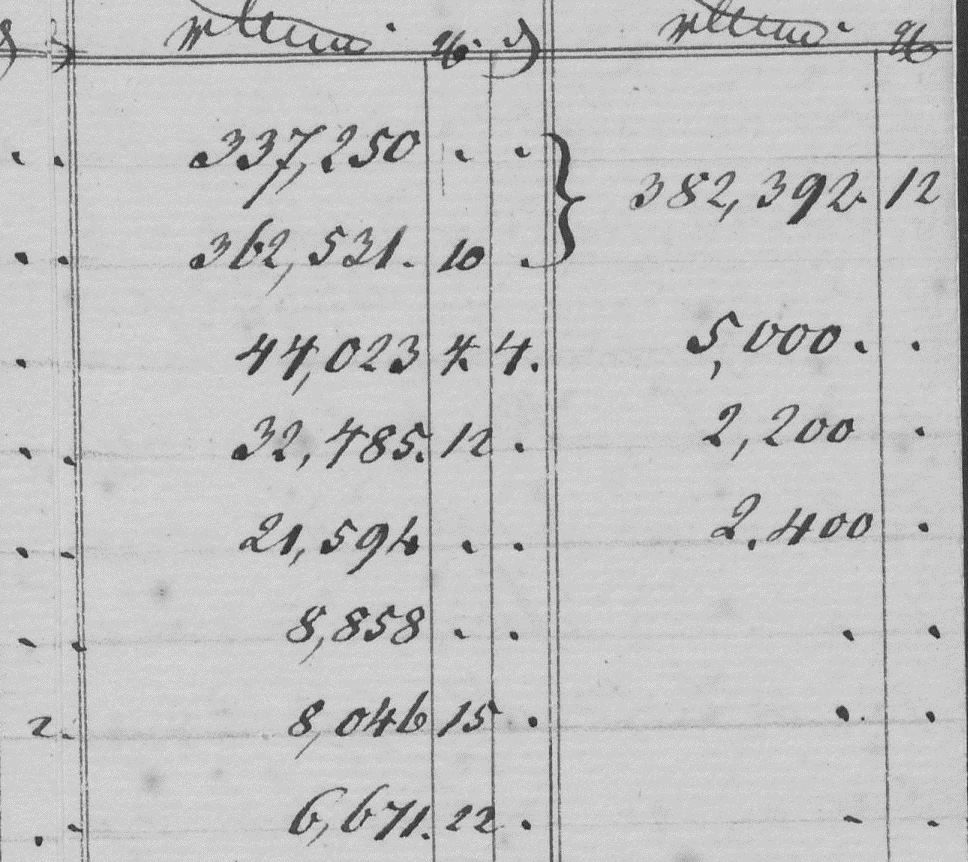 337,250 . . 382,392. 12
362,531. 10 .
44,023 4. 4. 5,000 . .
32,485. 12 . 2,200 .
21,594 . . 2,400 .
8,858 . . . .
2. 8,046 15 . . .
6,671. 22 . - .